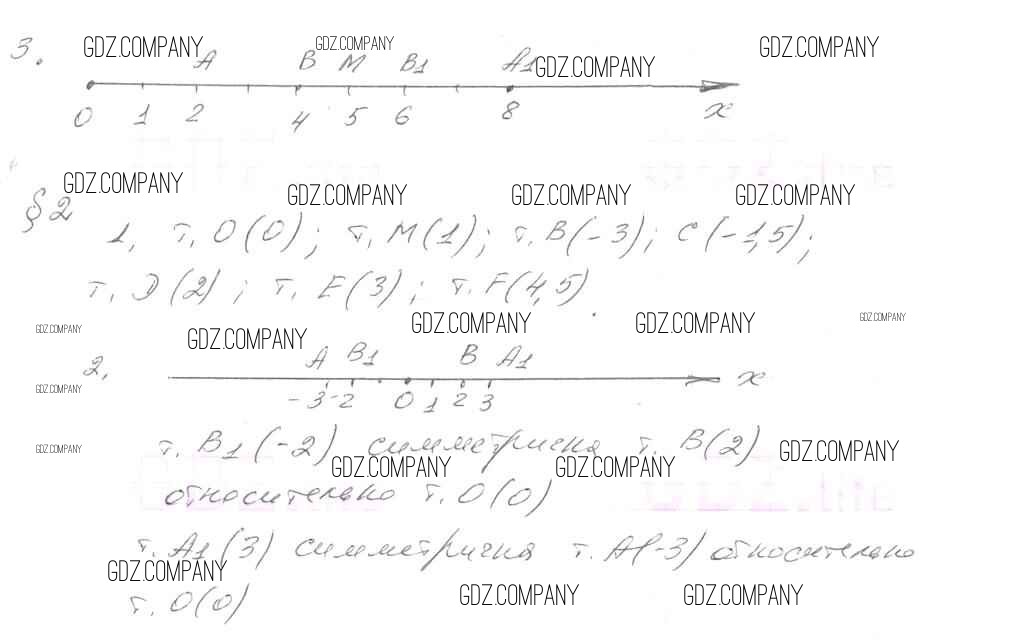 3. GDZ.COMPANY GDZ.COMPANY GDZ.COMPANY
A B M B1 A1 GDZ.COMPANY
0 1 2 4 5 6 8 x
§2 GDZ.COMPANY GDZ.COMPANY GDZ.COMPANY GDZ.COMPANY
1, т. O(0); т. M(1); т. B(-3); C(-1,5);
т. D(2); т. E(3); т. F(4,5).
GDZ.COMPANY GDZ.COMPANY GDZ.COMPANY GDZ.COMPANY GDZ.COMPANY
2, A B1 B A1
x
GDZ.COMPANY -3 -2 0 1 2 3
т. B1(-2) симметрична т. B(2) GDZ.COMPANY
GDZ.COMPANY GDZ.COMPANY GDZ.COMPANY
относительно т. O(0)
т. A1(3) симметрична т. A(-3) относительно
GDZ.COMPANY
т. O(0) GDZ.COMPANY GDZ.COMPANY